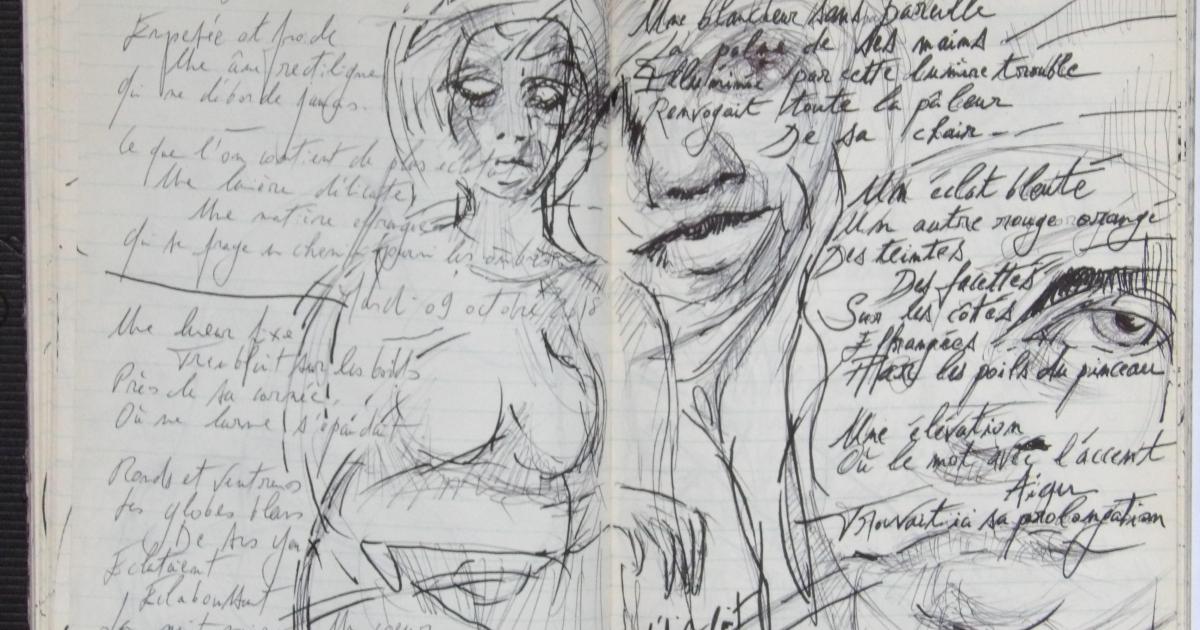 et froide
Une âme rectiligne
qui ne déborde jamais.
Ce que l'on contient de plus
Une lumière délicate,
Une matière
qui se fraye un chemin parmi les ombres
Mardi 09 octobre 2018
Une lueur fixe
Tremblait sur les bords
Près de sa cornée,
Où une larme s'épandait
Ronds et
Les globes blancs
De ses yeux
Éclataient
Une blancheur sans pareille
La palme de ses mains
Illuminée par cette lumière trouble
Renvoyait toute la pâleur
De sa chair -
Un éclat bleuté
Un autre rouge orangé
Des teintes
Des facettes
Sur les côtés
Effrangées
les poils du pinceau
Une élévation
Où le mot avec l'accent
Aigu
Trouvait ici sa prolongation